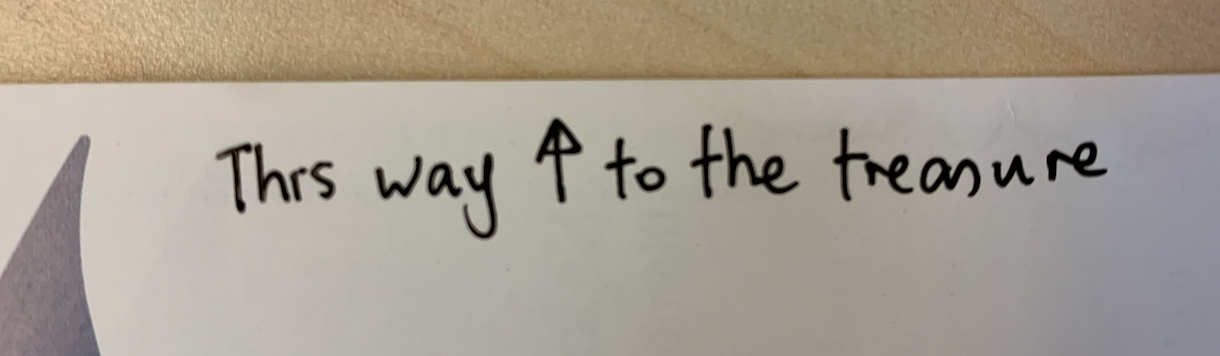 This way ↑ to the treasure